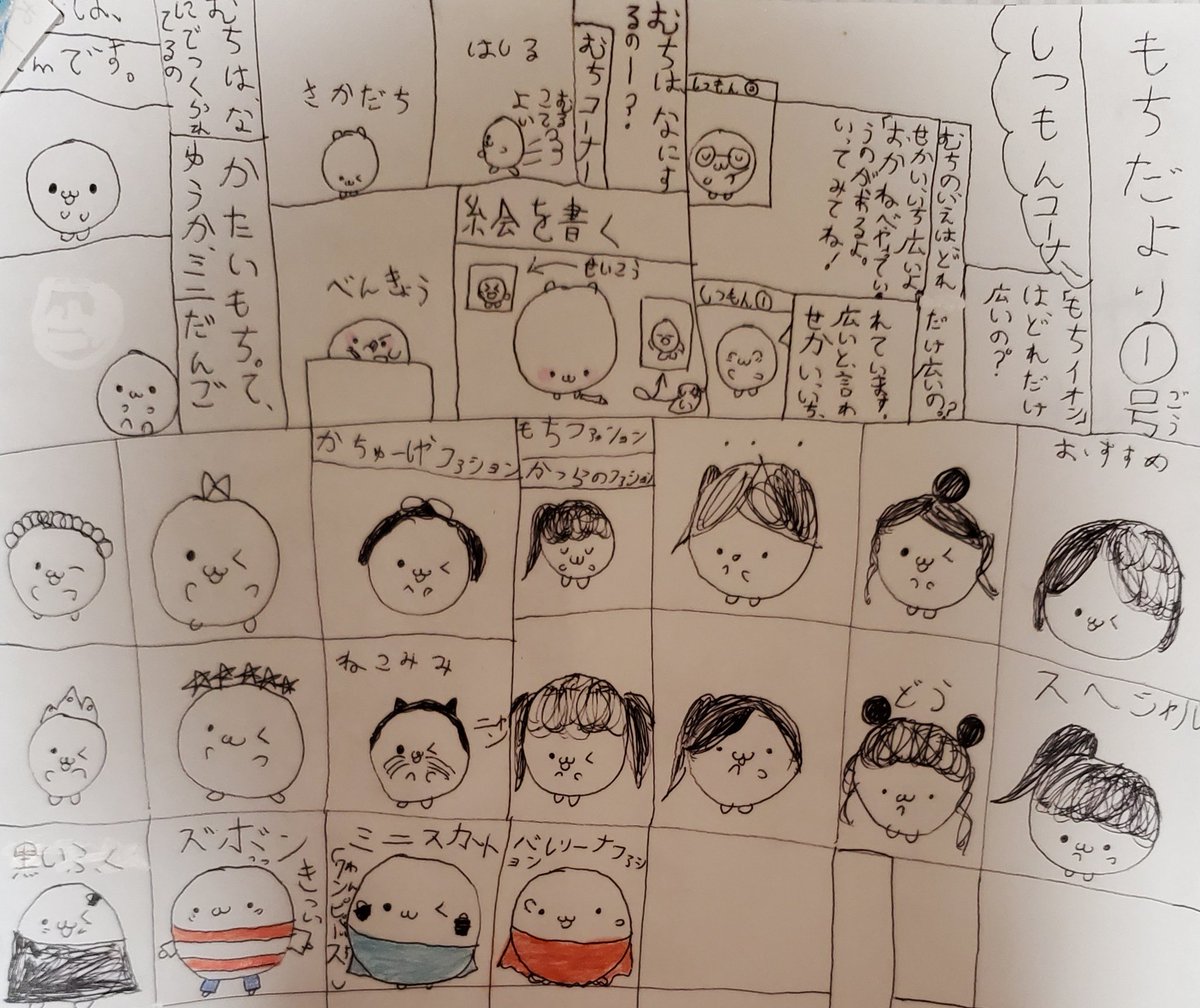 もちだより①号
ごう
しつもんコーナー
「もちイオン」
は、どれだけ
広いの?
むちのいえは、どれ
だけ広いの。?
せかい、いち広いよ
「おかねべや」ってい
うのがおるよ。
いってみてね!
しつもん①
れています。
広いと言わ
せかいいっち、
しつもん②
むちは、なにす
るのー?
むちコーナー
はしる
さかだち
絵会を書く
せいこう
べんきょう
むちは、な
にでつくられ
てるの
かたいもち。て、
ゆうか、ミニだんご
です。
おすすめ
スペシャル
どう
もちファッション
かつらのファッション
かちゅーしゃファッション
ねこみみ
ニャン
バレリーナファッション
ミニスカート
ズボン
黒いふく